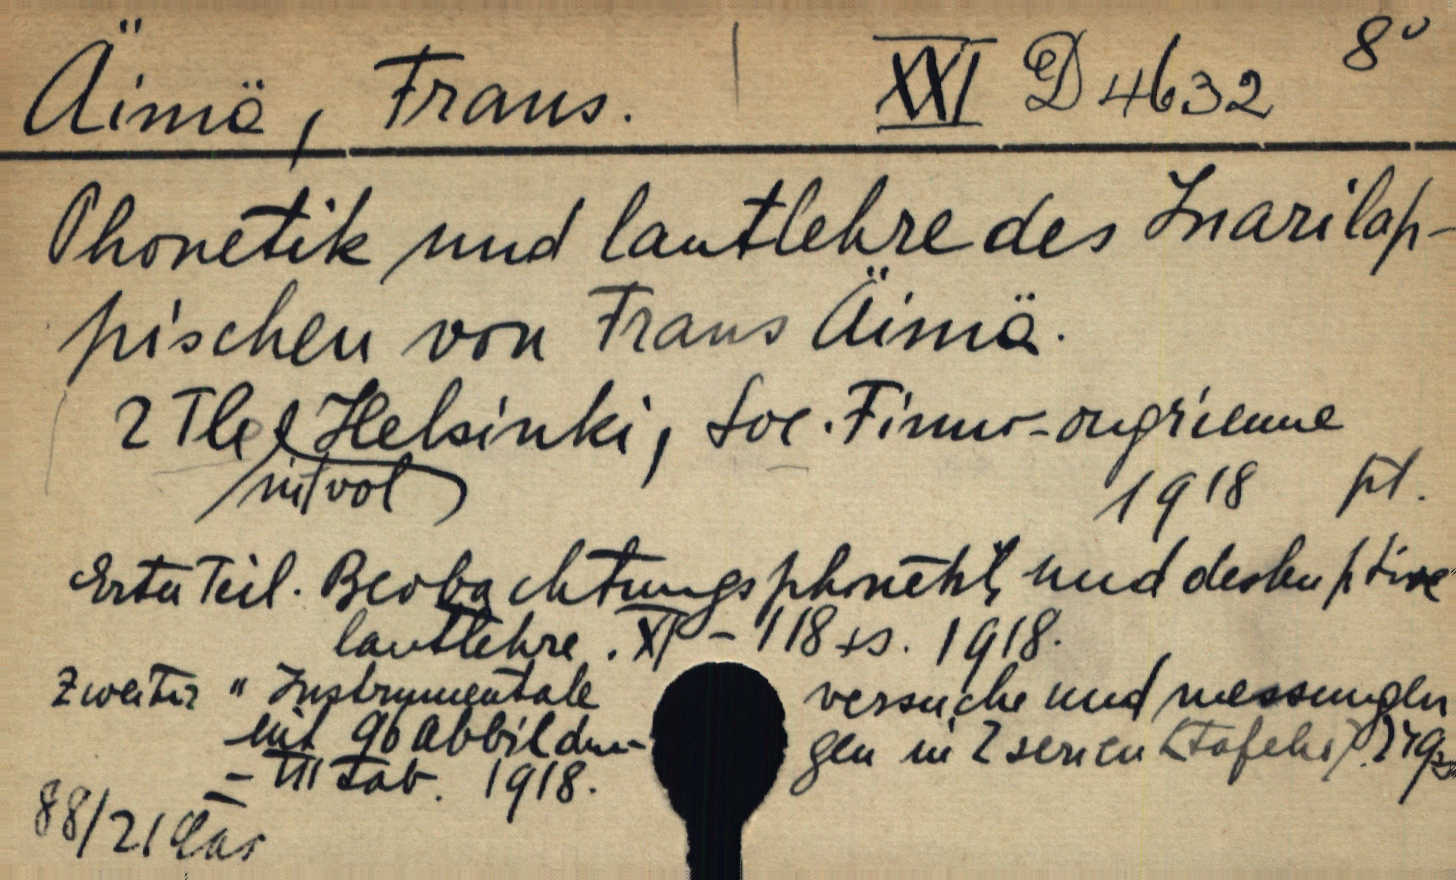 Äimä, Frans. XXI D 4632 8°
Phonetik und lautlehre des Inarilap-
pischen von Frans Äimä.
2 Tle Helsinki, Soc. Finno-ougrienne
in 1 vol 1918 pt.
Erster Teil. Beobachtungsphonetik und deskriptive
lautlehre. XI - 118 + s. 1918.
Zweiter " Instrumentale versuche und messungen
mit 96 abbildungen in 2 serien (tafeln).
- III tab. 1918.
88/21